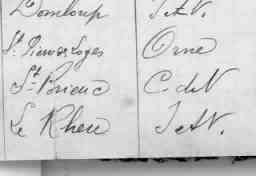 Domloup I.&V.
St. Pierre des Loges Orne
St. Brieuc C. du N
Le Rheu I.&V.